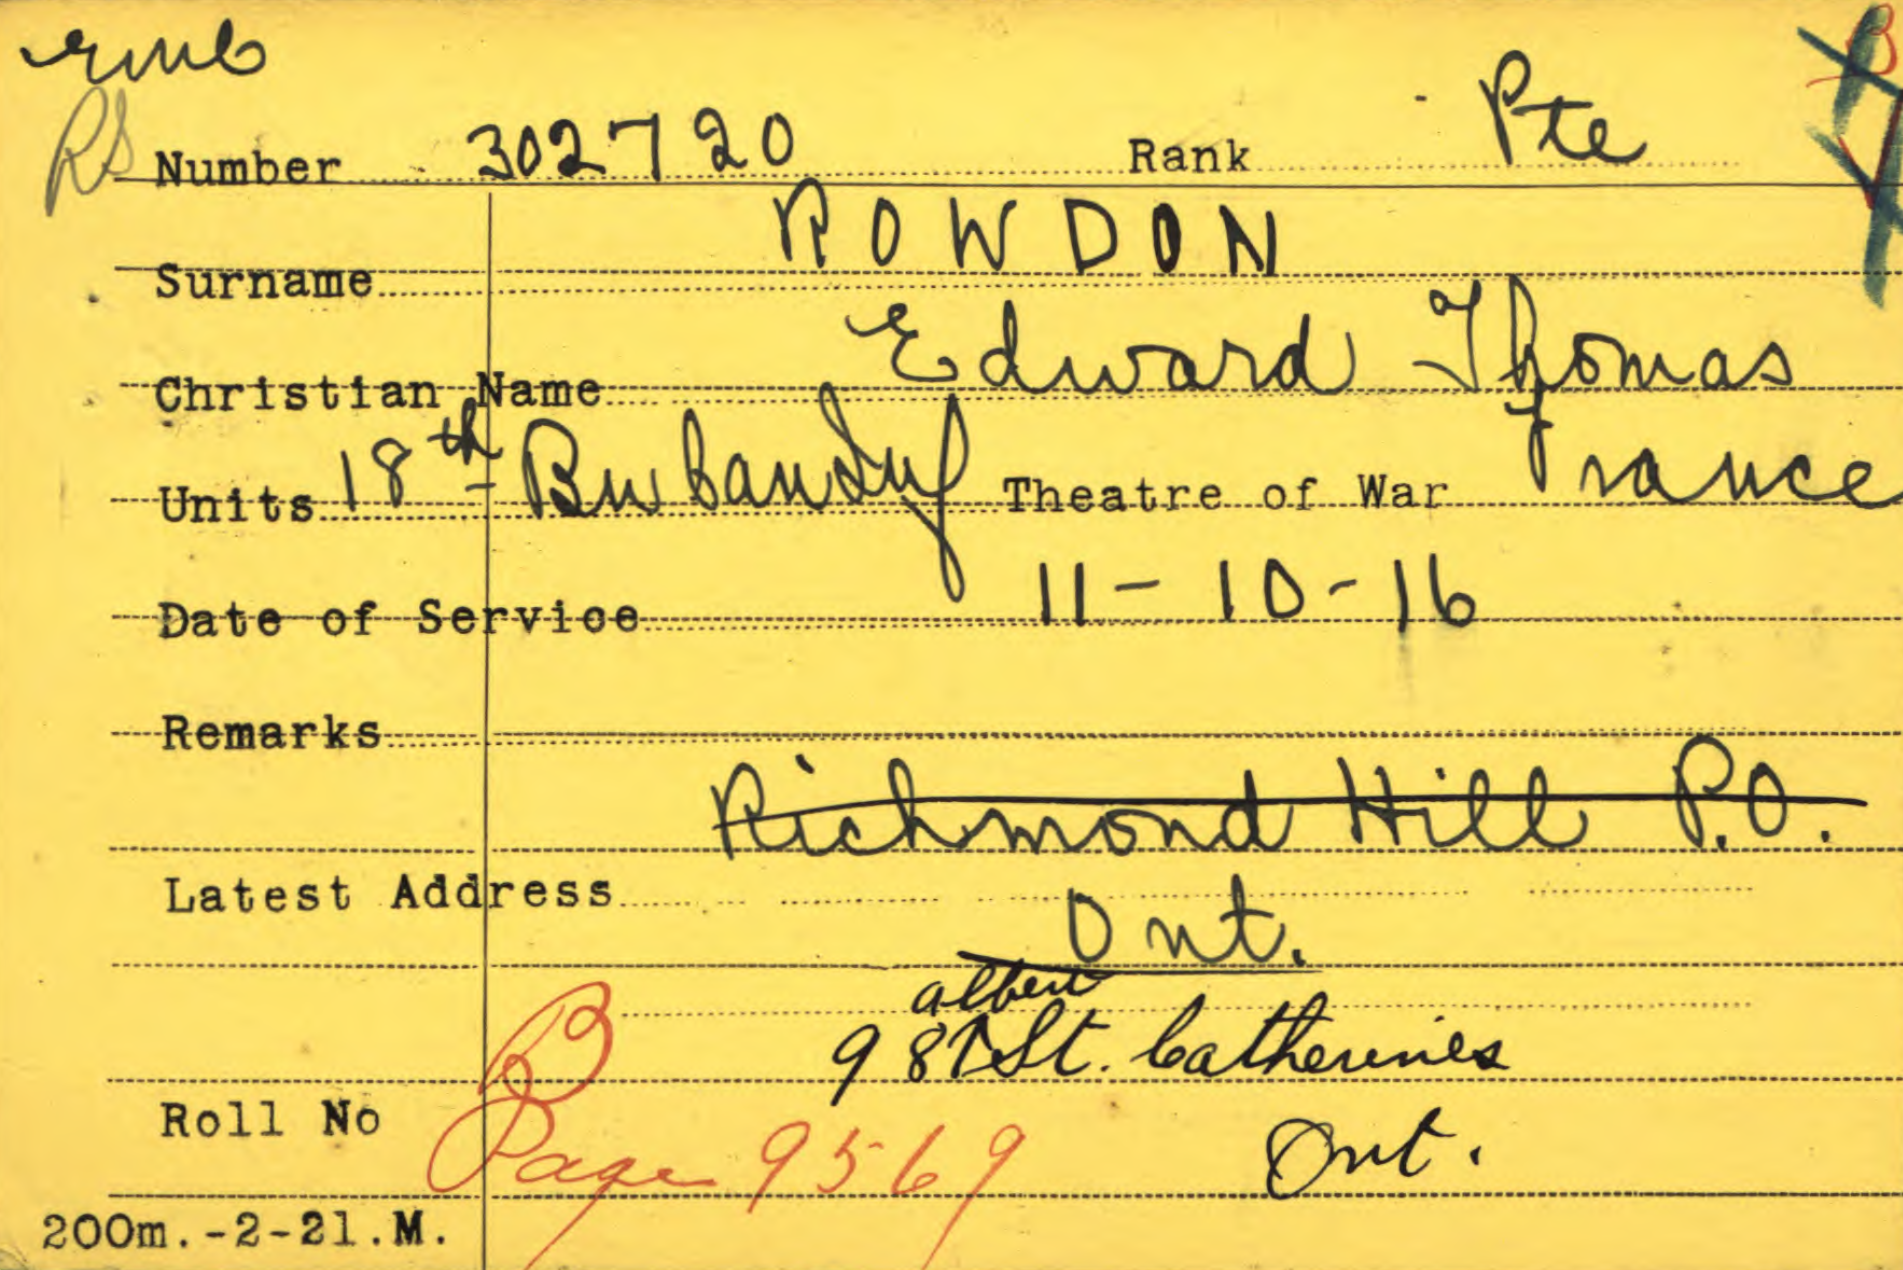 RS
Number 302720 Rank Pte
Surname ROWDON
Christian Name Edward Thomas
Units 18th Bn Can Inf Theatre of War France
Date of Service 11-10-16
Remarks
Richmond Hill P.O.
Latest Address
Ont.
albert
98 St. Catherines
B
Roll No
Page 9569 Ont.
200m.-2-21.M.